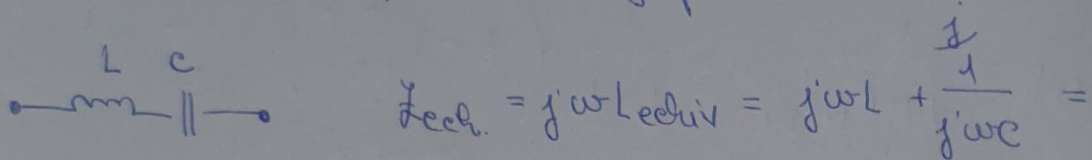 L C
Zech. = jωLechiv = jωL + 1/jωC =